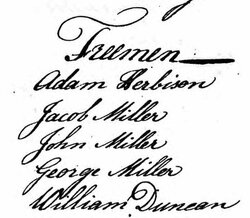 Freemen
Adam Herbison
Jacob Miller
John Miller
George Miller
William Duncan